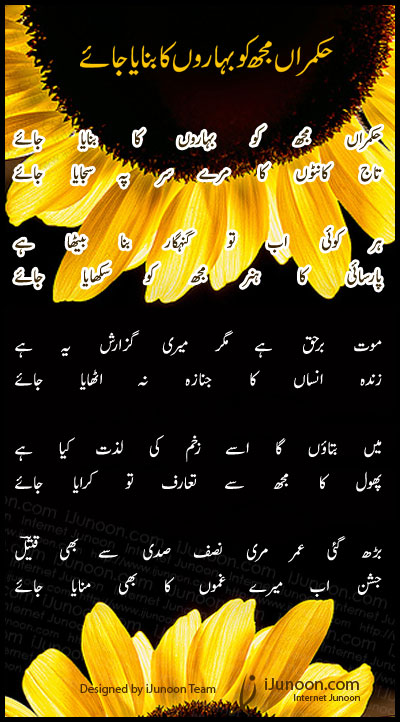 حکمراں مجھ کو بہاروں کا بنایا جائے
حکمراں مجھ کو بہاروں کا بنایا جائے
تاج کانٹوں کا مرے سر پہ سجایا جائے
ہر کوئی اب تو گنہگار بنا بیٹھا ہے
پارسائی کا ہنر مجھ کو سکھایا جائے
موت برحق ہے مگر میری گزارش یہ ہے
زندہ انساں کا جنازہ نہ اٹھایا جائے
میں بتاؤں گا اسے زخم کی لذت کیا ہے
پھول کا مجھ سے تعارف تو کرایا جائے
بڑھ گئی عمر مری نصف صدی سے بھی قتیلؔ
جشن اب میرے غموں کا بھی منایا جائے
Designed by iJunoon Team
iJunoon.com
Internet Junoon